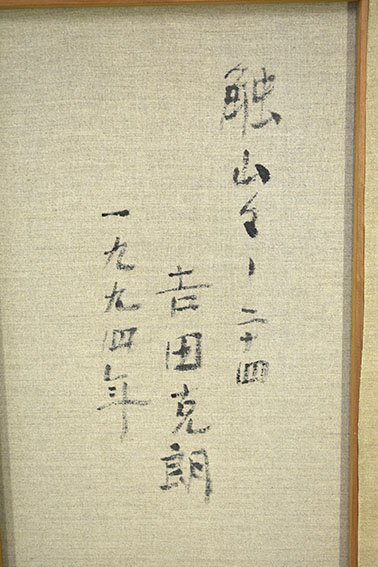 触山
二十四
吉田克朗
一九九四年